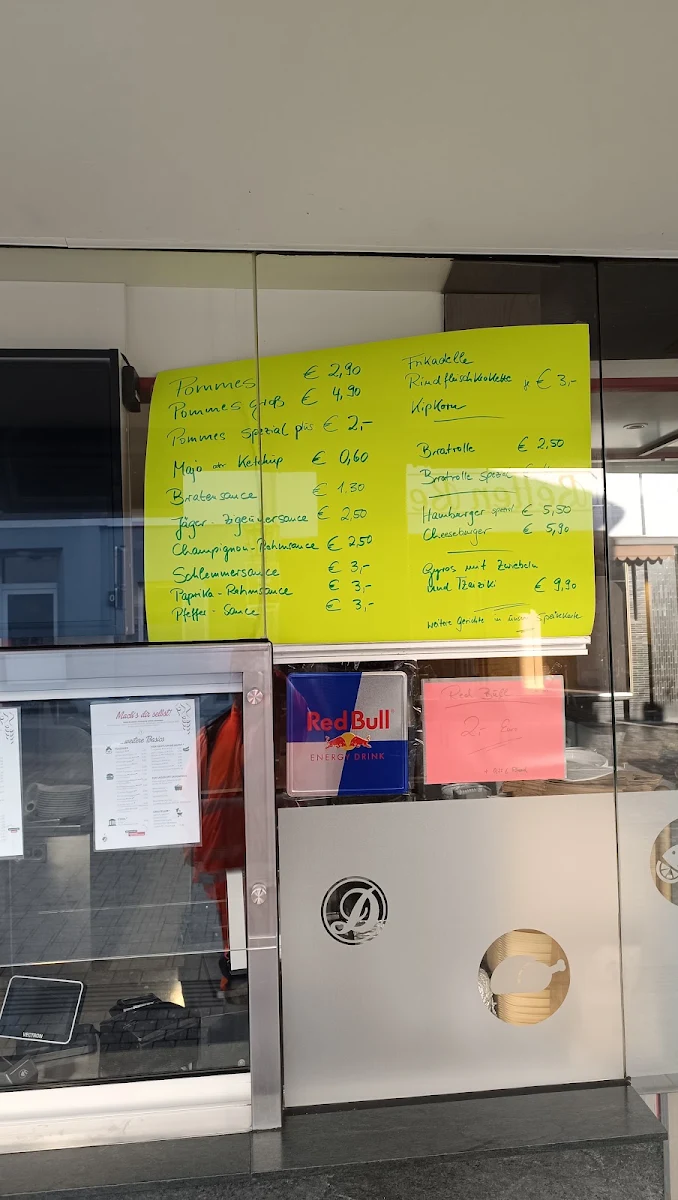 Pommes € 2,90
Pommes groß € 4,90
Pommes spezial plus € 2,-
Majo oder Ketchup € 0,60
Bratensauce € 1.30
Jäger- Zigeunersauce € 2,50
Champignon-Rahmsauce € 2,50
Schlemmersauce € 3,-
Paprika-Rahmsauce € 3,-
Pfeffer-Sauce € 3,-
Frikadelle
Rindfleischkrokette € 3,-
Kipkorn
Bratrolle € 2,50
Bratrolle Spezial
Hamburger spezial € 5,50
Cheeseburger € 5,90
Gyros mit Zwiebeln
und Tzaziki € 9,90
weitere Gerichte in unserer Speisekarte
Mach's dir selbst!
...weitere Basics
Red Bull
ENERGY DRINK
Red Bull
2,- Euro
VECTRON